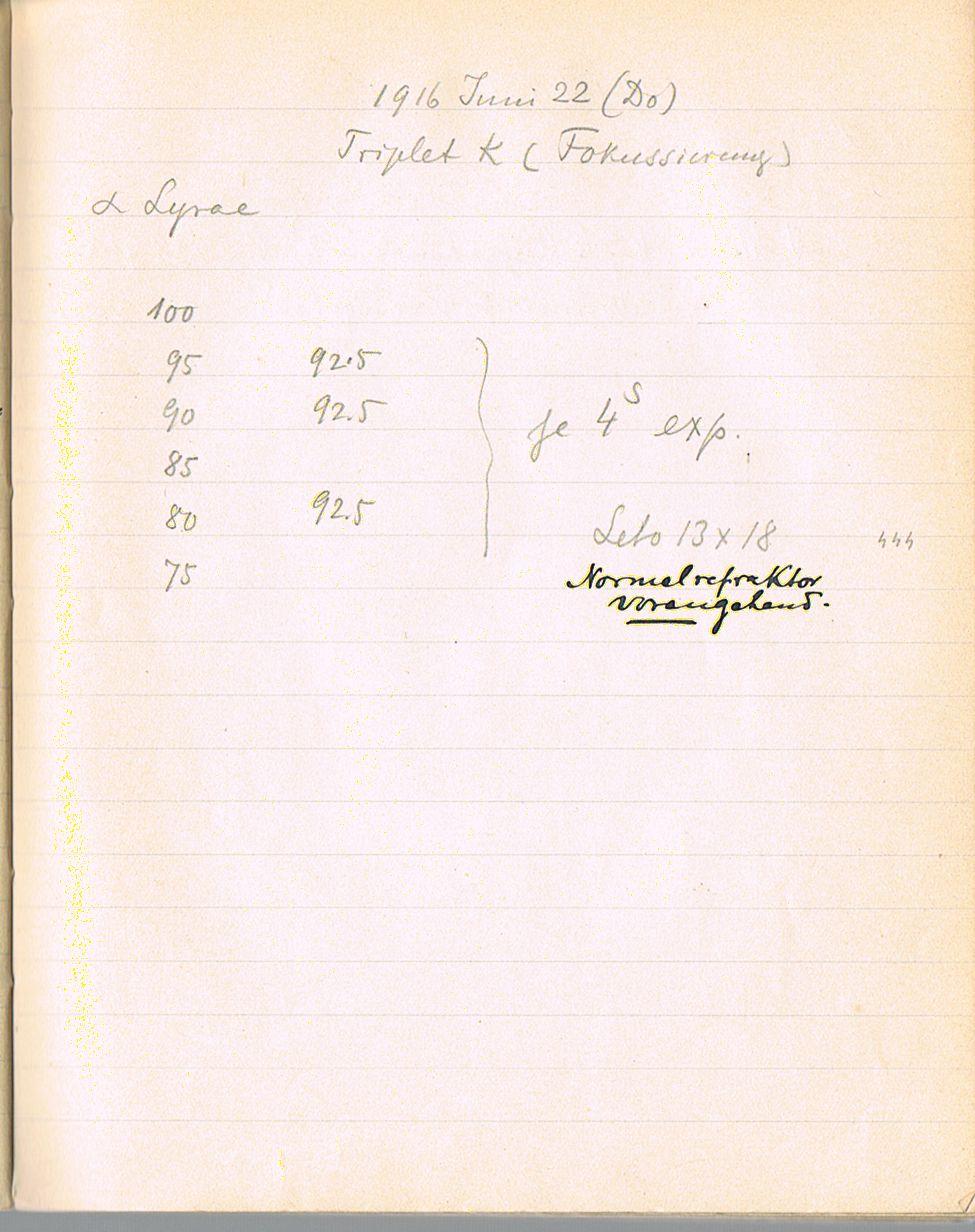 1916 Juni 22 (Do)
Triplet K (Fokussierung)
α Lyrae
100
95 92.5
90 92.5
je 4ˢ exp.
85
80 92.5
Leto 13 x 18
75
Normalrefraktor
vorangehend.